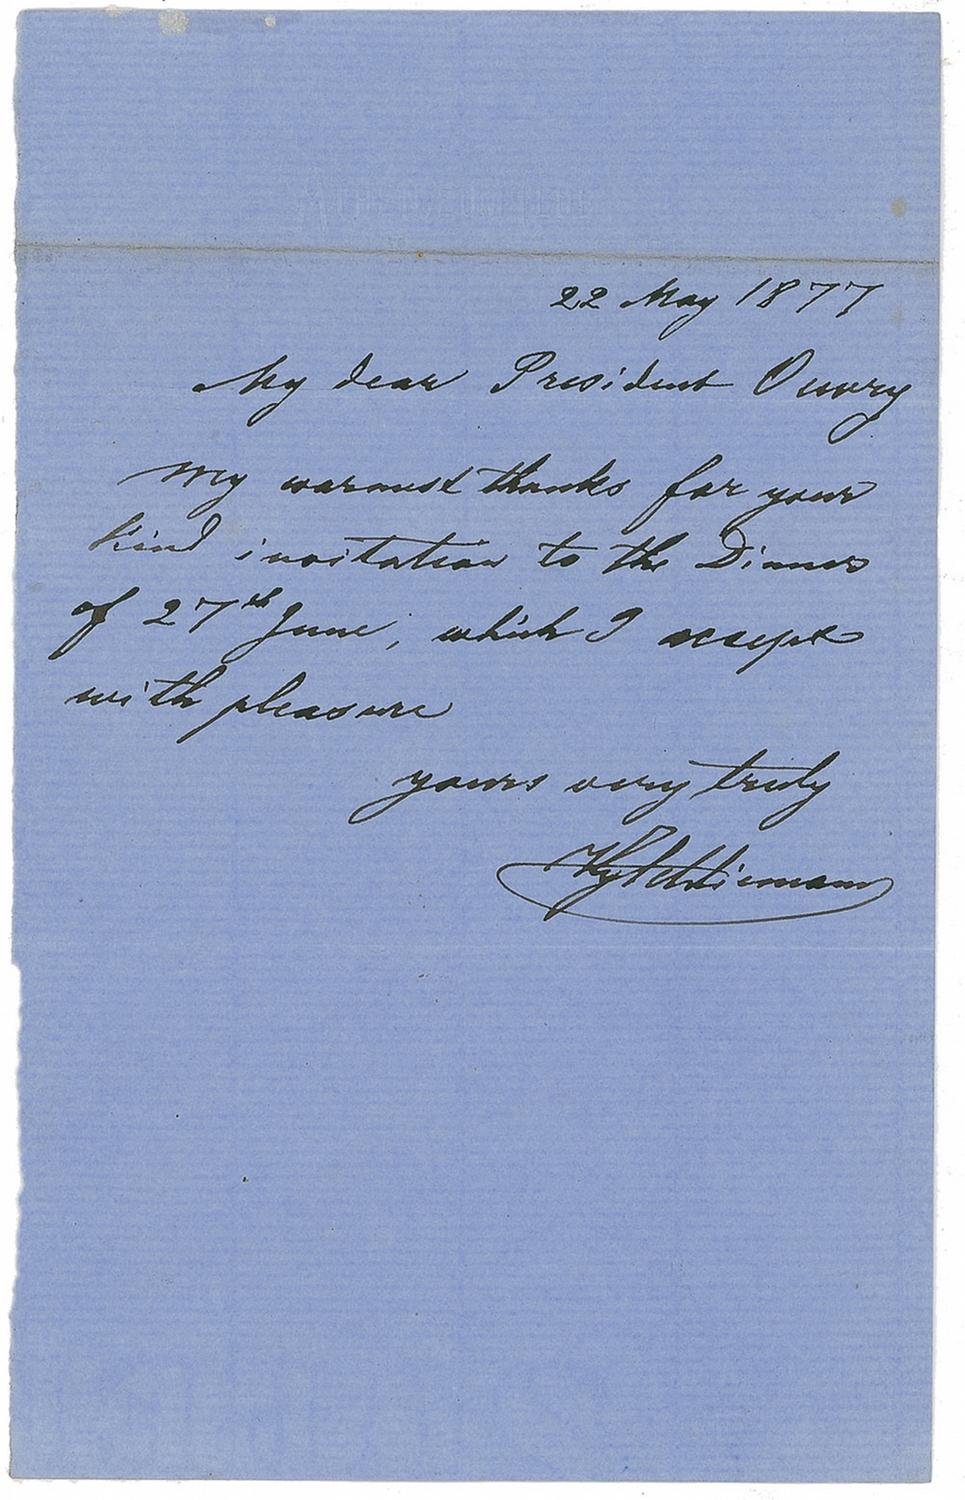 ATHENÆUM CLUB
22 May 1877
My dear President Ouvry
My warmest thanks for your
kind invitation to the Dinner
of 27th June, which I accept
with pleasure
yours very truly
Hy Schliemann